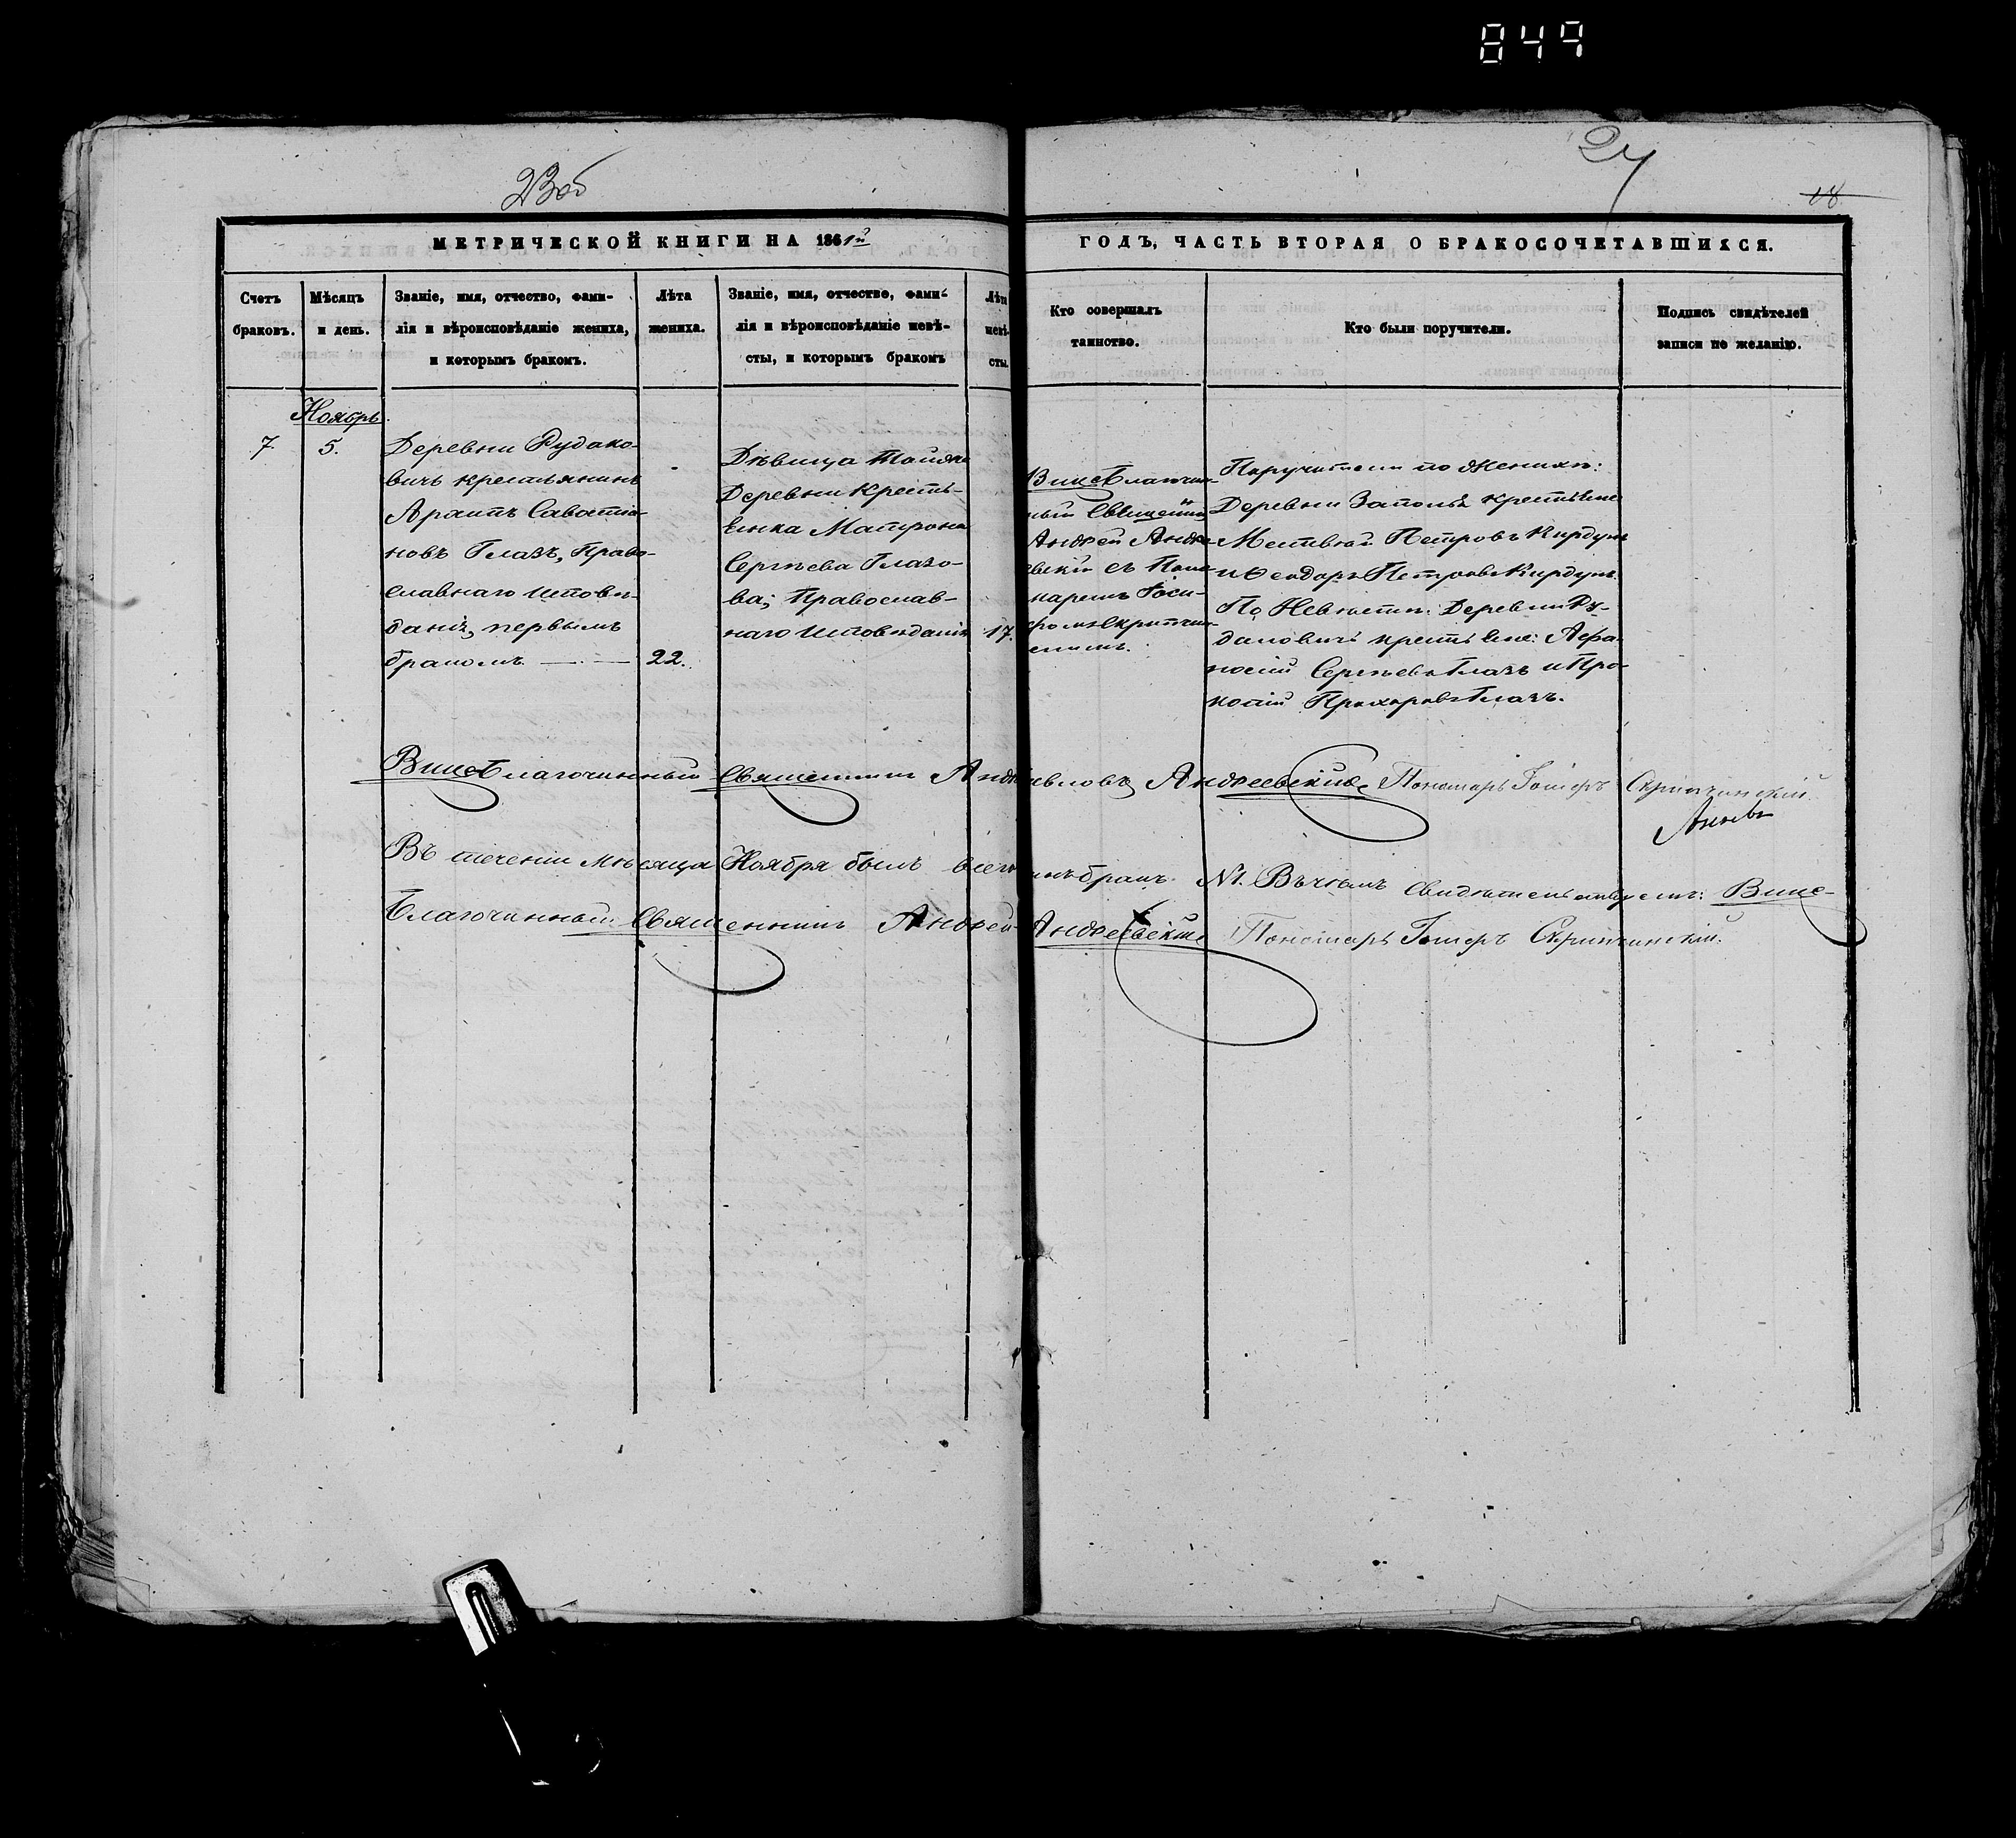 849
23об
24
18
МЕТРИЧЕСКОЙ КНИГИ НА 1861й
ГОДЪ, ЧАСТЬ ВТОРАЯ О БРАКОСОЧЕТАВШИХСЯ.
Счетъ
браковъ.
Мѣсяцъ
и день.
Званіе, имя, отчество, фами-
лія и вѣроисповѣданіе жениха,
и которымъ бракомъ.
Лѣта
жениха.
Званіе, имя, отчество, фами-
лія и вѣроисповѣданіе невѣ-
сты, и которымъ бракомъ
Лѣта
невѣ-
сты.
Кто совершалъ
таинство.
Кто были поручители.
Подпись свидѣтелей
записи по желанію.
Ноябрь
7.
5.
Деревни Рудако-
вичъ крестьянинъ
Савастіа-
новъ Глазъ, Право-
славнаго исповѣ-
данія, первымъ
бракомъ
22.
Дѣвица
Деревни кресть-
Янка Матрона
Сергѣева Глазо-
ва; Православ-
наго исповѣданія
17.
Вице Благочин-
ный Священникъ
Андрей Андре-
евскій съ Поно-
маремъ Іоси-
фомъ Скрипчин-
скимъ.
Поручители по Женихѣ:
Деревни Заполья крестьяне
Матвей Петровъ Кирдунъ
и Ѳеодоръ Петровъ Кирдунъ.
По Невѣстѣ: Деревни Ру-
даковичъ крестьяне: Афа-
насій Сергѣевъ Глазъ и Про-
копій Прохоровъ Глазъ.
Вице Благочинный Священникъ Андрей Андреевскій Пономарь Іосифъ Скрипчинскій.
Въ теченіи мѣсяца Ноября былъ всего бракъ №1. Въ чемъ свидѣтельствуемъ: Вице-
Благочинный Священникъ Андрей Андреевскій Пономарь Іосифъ Скрипчинскій.